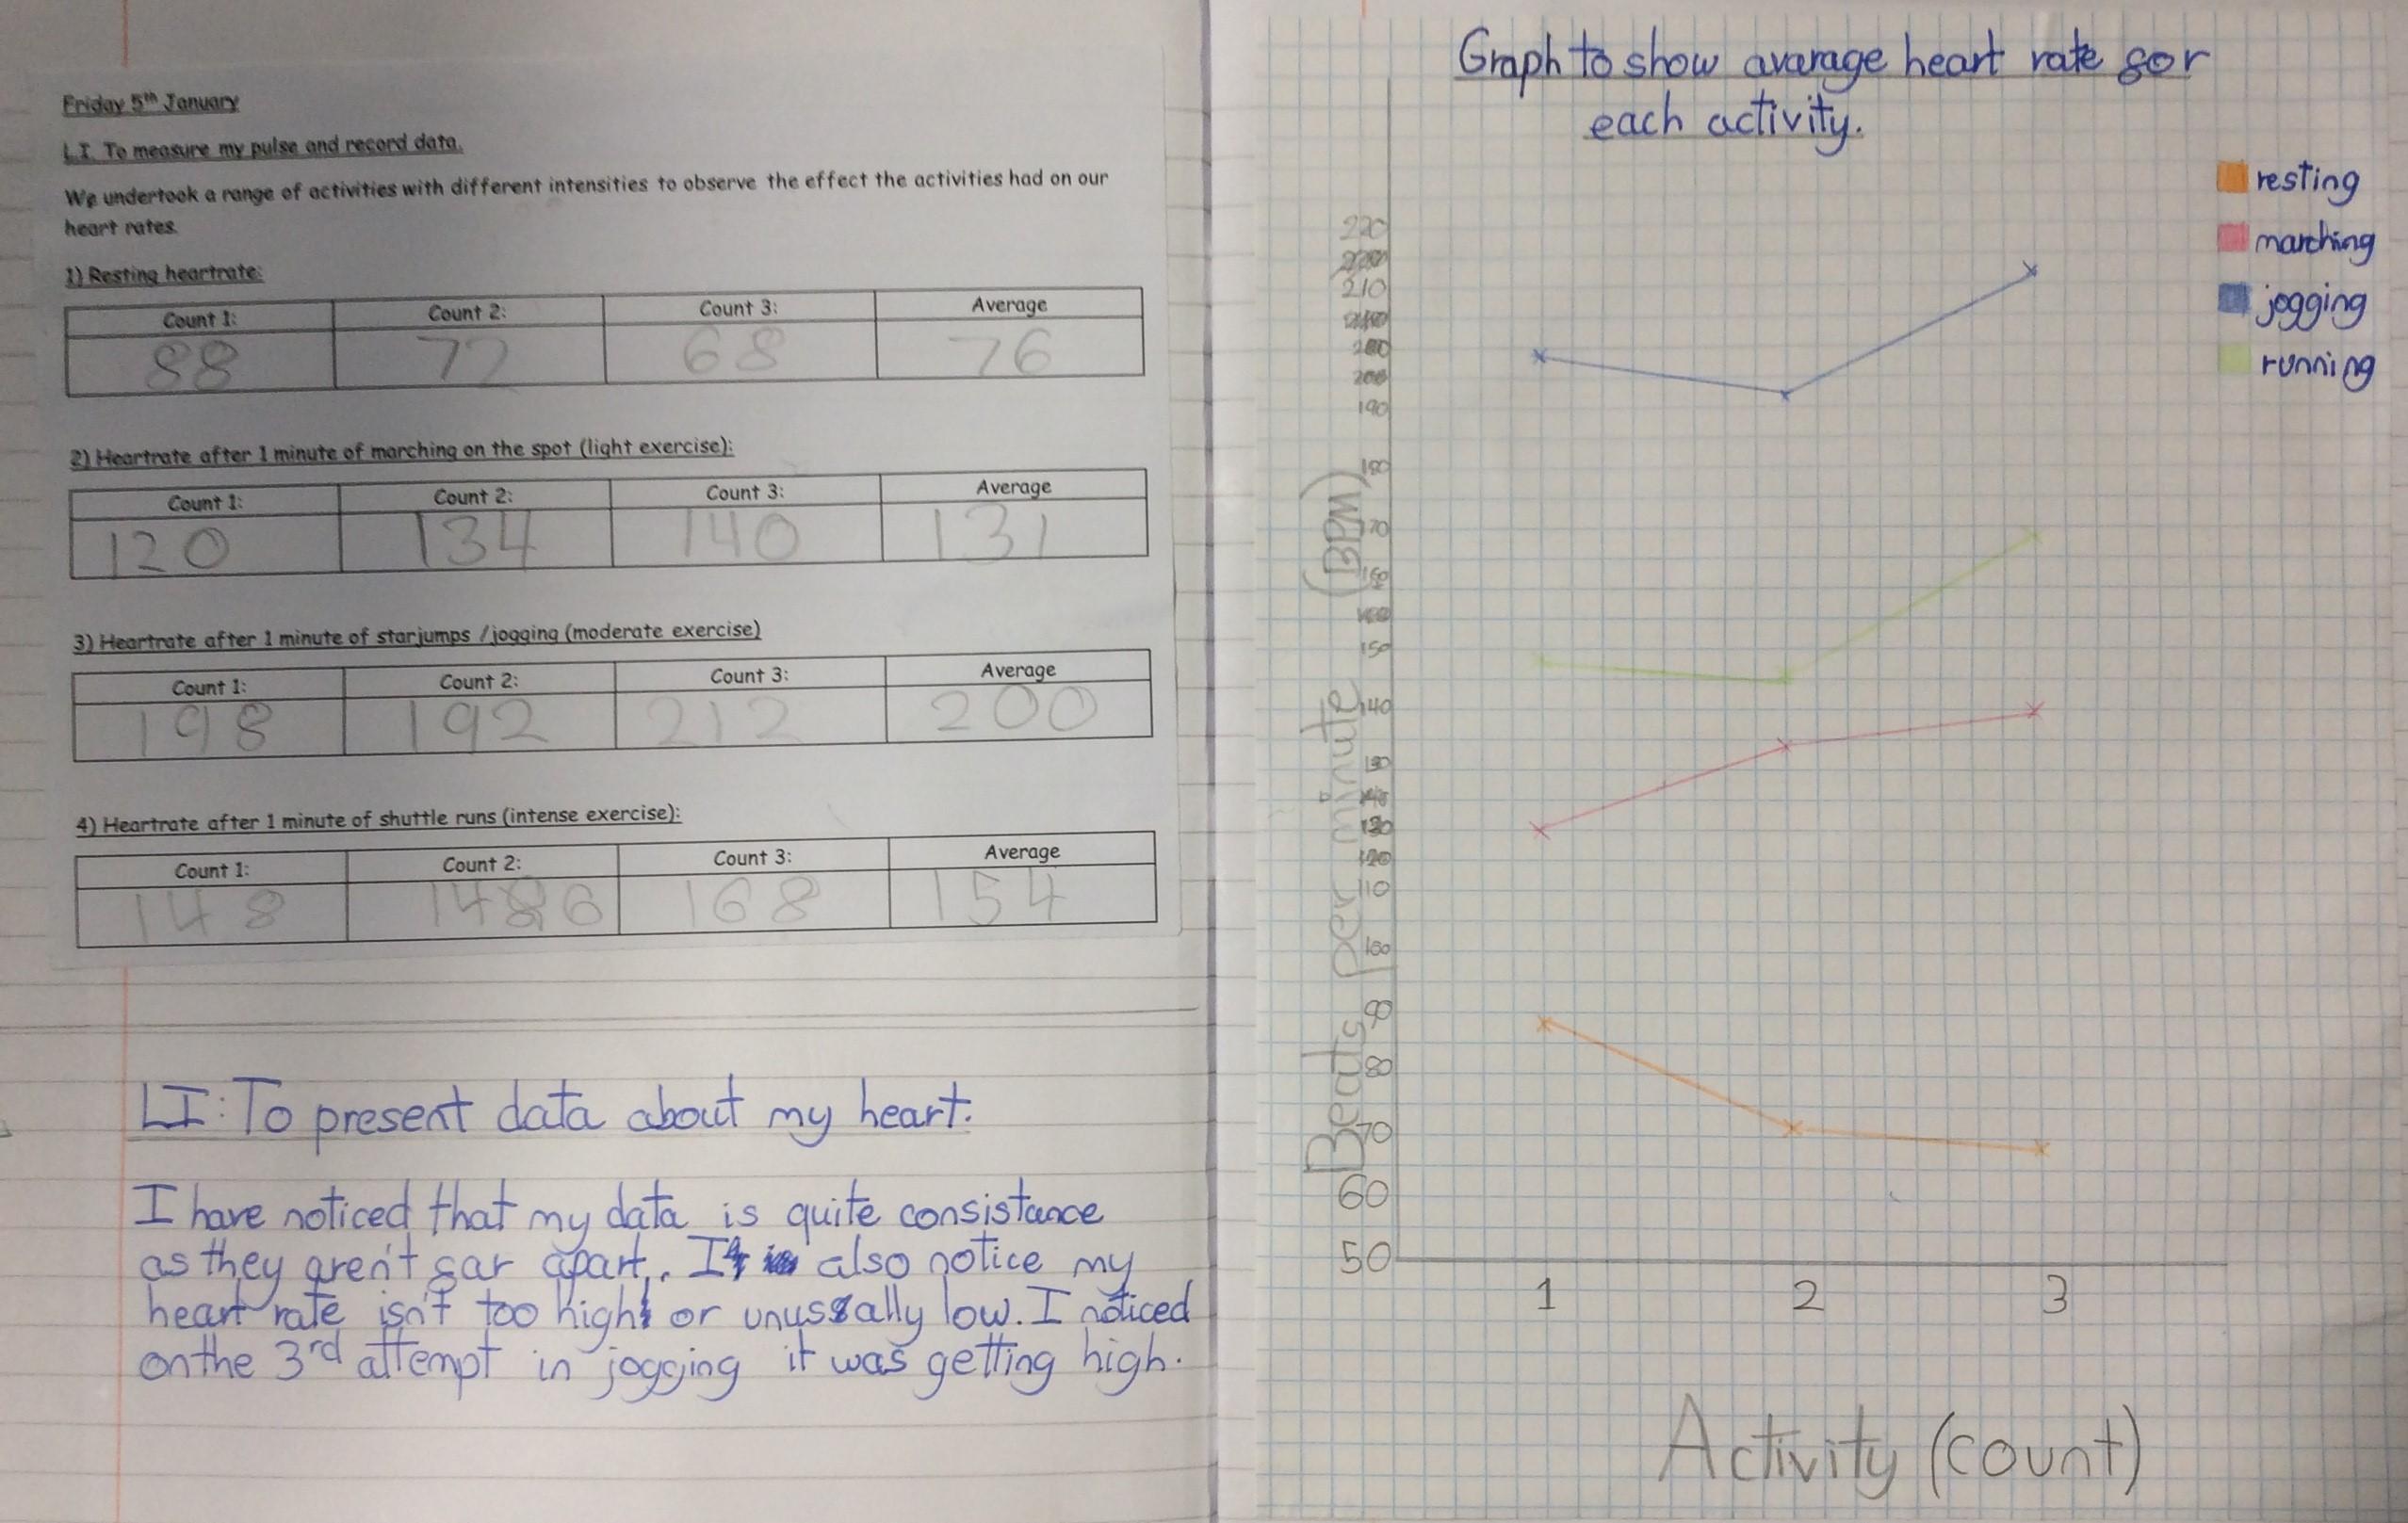 Friday 5th January
L.I. To measure my pulse and record data.
We undertook a range of activities with different intensities to observe the effect the activities had on our
heart rates.
1) Resting heartrate:
Count 1: Count 2: Count 3: Average
88 72 68 76
2) Heartrate after 1 minute of marching on the spot (light exercise):
Count 1: Count 2: Count 3: Average
120 134 140 131
3) Heartrate after 1 minute of starjumps / jogging (moderate exercise)
Count 1: Count 2: Count 3: Average
198 192 212 200
4) Heartrate after 1 minute of shuttle runs (intense exercise):
Count 1: Count 2: Count 3: Average
148 146 168 154
LI: To present data about my heart.
I have noticed that my data is quite consistance
as they aren't far apart. I also notice my
heart rate isn't too high or unusually low. I noticed
on the 3rd attempt in jogging it was getting high.
Graph to show avarage heart rate for
each activity.
resting
marching
jogging
running
Beats per minute (BPM)
220
210
200
190
180
170
160
150
140
130
120
110
100
90
80
70
60
50
1 2 3
Activity (count)